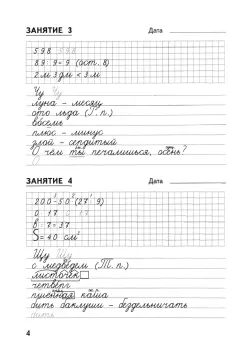 ЗАНЯТИЕ 3 Дата
598 598
89 : 9 = 9 (ост. 8)
2 м 3 дм < 3 м
Чу Чу
луна – месяц
ото льда (Р. п.)
восемь
плюс – минус
злой – сердитый
О чём ты печалишься, осень?
ЗАНЯТИЕ 4 Дата
200 – 50 · (27 : 9)
0 17 0 17
в : 7 = 37
S = 40 см²
Щу Щу
с медведем (Т. п.)
листочек
четверг
пшённая каша
бить баклуши – бездельничать
бить
4